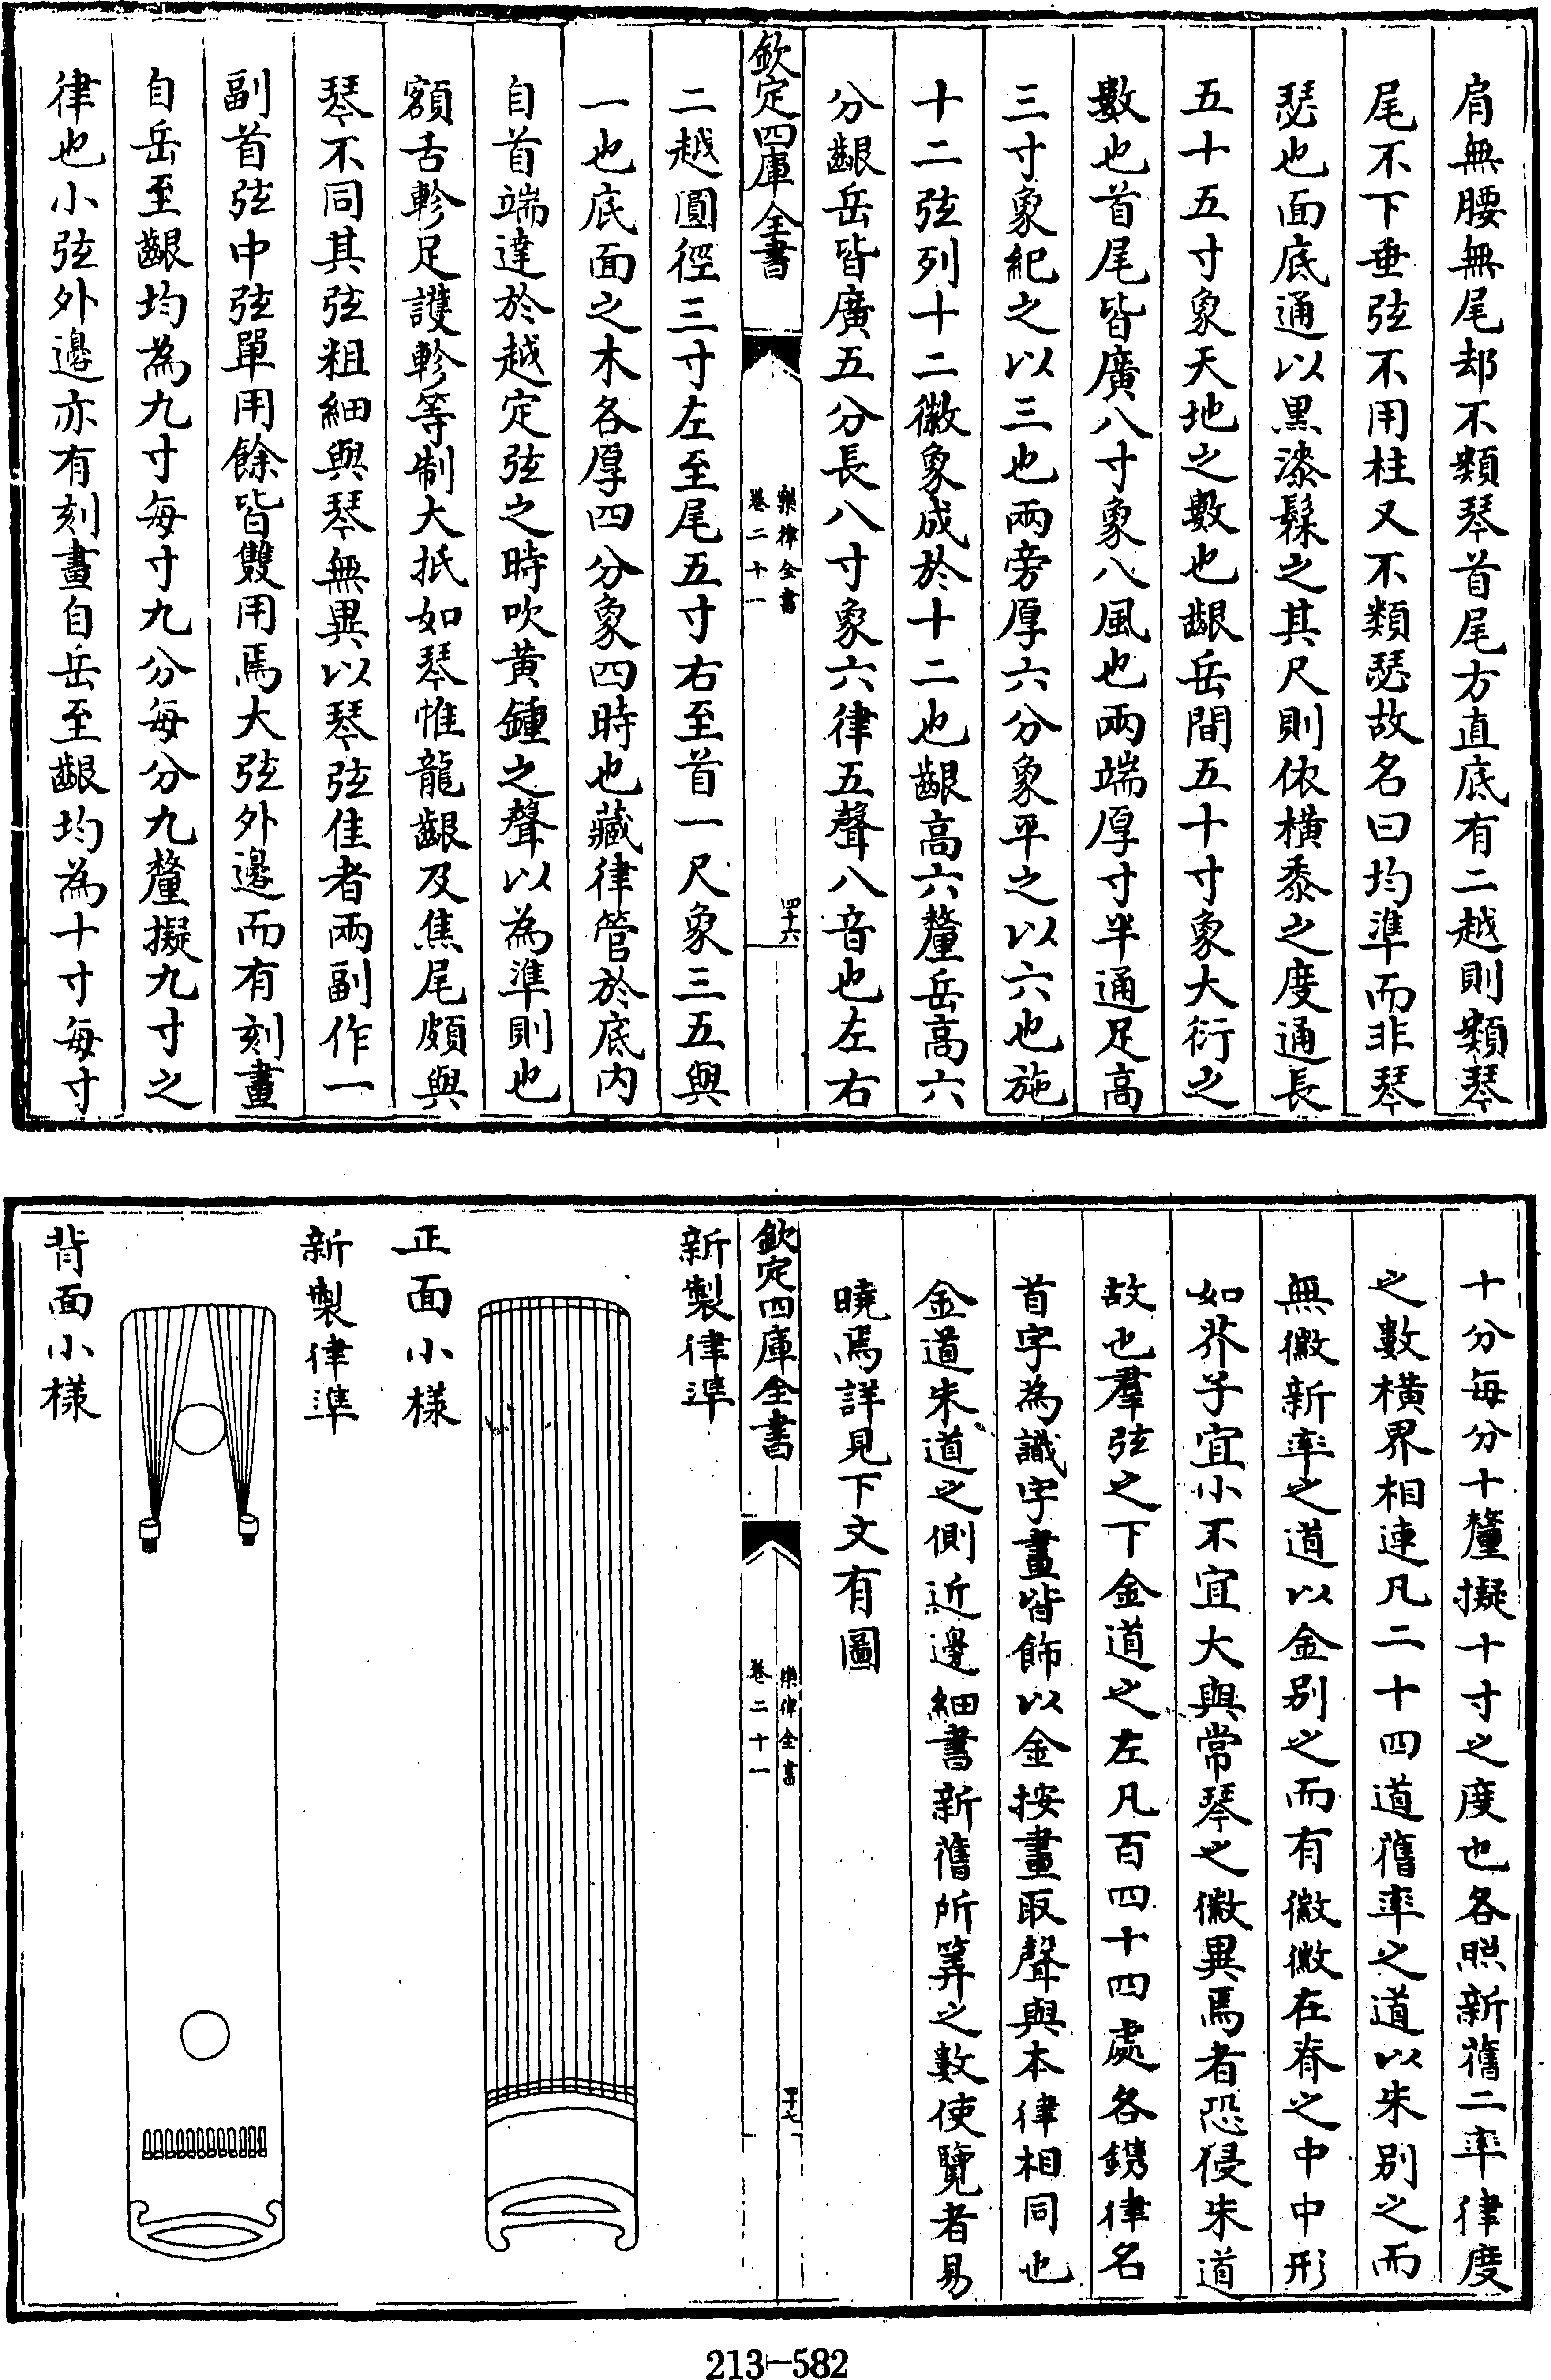 肩無腰無尾却不類琴首尾方直底有二越則類琴
尾不下垂弦不用柱又不類瑟故名曰均準而非琴
瑟也面底通以黑漆髹之其尺則依橫黍之度通長
五十五寸象天地之數也齦岳間五十寸象大衍之
數也首尾皆廣八寸象八風也兩端厚寸半通足高
三寸象紀之以三也兩旁厚六分象平之以六也施
十二弦列十二徽象成於十二也齦高六釐岳高六
分齦岳皆廣五分長八寸象六律五聲八音也左右
欽定四庫全書
樂律全書
卷二十一
四十六
二越圓徑三寸左至尾五寸右至首一尺象三五與
一也底面之木各厚四分象四時也藏律管於底内
自首端達於越定弦之時吹黄鍾之聲以為準則也
額舌軫足護軫等制大抵如琴惟龍齦及焦尾頗與
琴不同其弦粗細與琴無異以琴弦佳者兩副作一
副首弦中弦單用餘皆雙用焉大弦外邊而有刻畫
自岳至齦均為九寸每寸九分每分九釐擬九寸之
律也小弦外邊亦有刻畫自岳至齦均為十寸每寸
十分每分十釐擬十寸之度也各照新舊二率律度
之數橫界相連凡二十四道舊率之道以朱别之而
無徽新率之道以金别之而有徽徽在脊之中中形
如芥子宜小不宜大與常琴之徽異焉者恐侵朱道
故也羣弦之下金道之左凡百四十四處各鐫律名
首字為識字畫皆飾以金按畫取聲與本律相同也
金道朱道之側近邊細書新舊所筭之數使覽者易
曉焉詳見下文有圖
欽定四庫全書
樂律全書
卷二十一
四十七
新製律準
正面小樣
新製律準
背面小樣
213-582